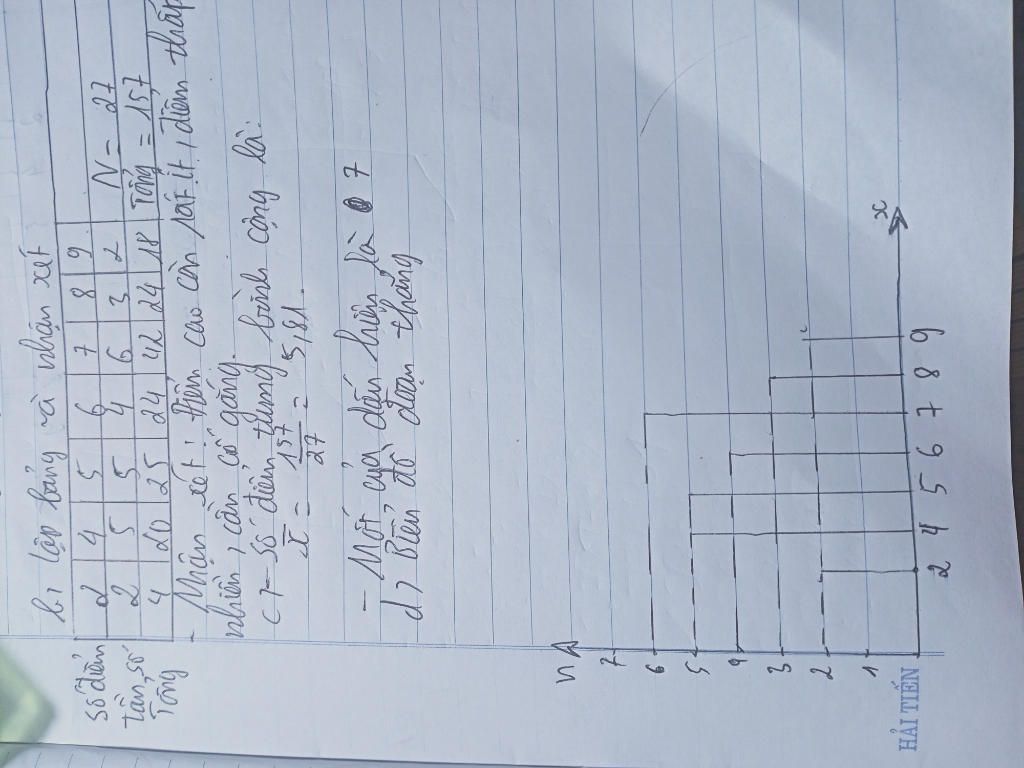 b, lập bảng và nhận xét
Số điểm 2 4 5 6 7 8 9
tần số 2 5 5 4 6 3 2 N = 27
Tổng 4 20 25 24 42 24 18 Tổng = 157
- Nhận xét: điểm cao còn rất ít, điểm thấp
nhiều, cần cố gắng.
c, - Số điểm trung bình cộng là:
x̄ = 157/27 = 5,81.
- Mốt của dấu hiệu là 7
d, Biểu đồ đoạn thẳng
n
7
6
5
4
3
2
1
2 4 5 6 7 8 9 x
HẢI TIẾN